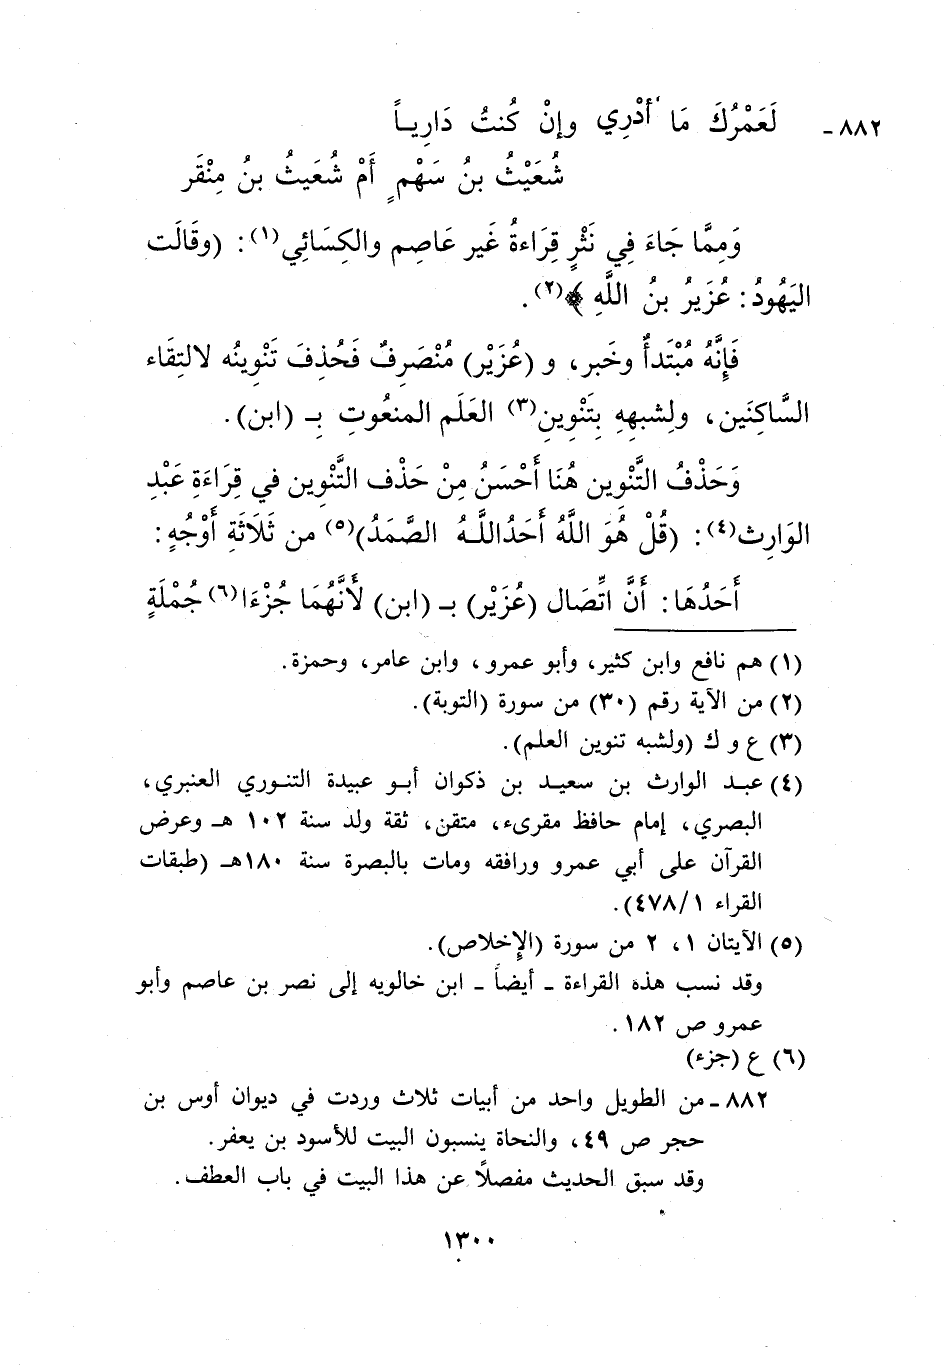 ٨٨٢ - لَعَمْرُكَ مَا أَدْرِي وإنْ كُنتُ دَارِيـاً
شُعَيْثُ بنُ سَهْمٍ أَمْ شُعَيثُ بنُ مِنْقَر
وَمِمَّا جَاءَ فِي نَثْرٍ قِرَاءةُ غَير عَاصِم والكِسَائِي(١): (وقَالَت
اليَهُودُ: عُزَيرُ بنُ اللَّهِ ﴾(٢).
فَإِنَّهُ مُبْتَدأٌ وخَبر، و (عُزَيْر) مُنْصَرِفٌ فَحُذِفَ تَنْوِينُه لالتِقَاء
السَّاكِنَين، ولِشبهِهِ بِتَنْوِين(٣) العَلَم المنعُوتِ بِـ (ابن).
وَحَذْفُ التَّنْوِين هُنَا أَحْسَنُ مِنْ حَذْف التَّنْوِين في قِرَاءَةِ عَبْدِ
الوَارِث(٤): (قُلْ هُوَ اللَّهُ أَحَدُاللَّـهُ الصَّمَدُ)(٥) من ثَلَاثَةِ أَوْجُهٍ:
أَحَدُهَا: أَنَّ اتِّصَال (عُزَيْر) بـ (ابن) لأَنَّهُمَا جُزْءَا(٦) جُمْلَةٍ
(١) هم نافع وابن كثير، وأبو عمرو، وابن عامر، وحمزة.
(٢) من الآية رقم (٣٠) من سورة (التوبة).
(٣) ع و ك (ولشبه تنوين العلم).
(٤) عبـد الوارث بن سعيـد بن ذكوان أبـو عبيدة التنـوري العنبري،
البصري، إمام حافظ مقرىء، متقن، ثقة ولد سنة ١٠٢ هـ وعرض
القرآن على أبي عمرو ورافقه ومات بالبصرة سنة ١٨٠هـ (طبقات
القراء ٤٧٨/١).
(٥) الآيتان ١، ٢ من سورة (الإخلاص).
وقد نسب هذه القراءة - أيضاً - ابن خالويه إلى نصر بن عاصم وأبو
عمرو ص ١٨٢.
(٦) ع (جزء)
٨٨٢ - من الطويل واحد من أبيات ثلاث وردت في ديوان أوس بن
حجر ص ٤٩، والنحاة ينسبون البيت للأسود بن يعفر.
وقد سبق الحديث مفصلاً عن هذا البيت في باب العطف.
١٣٠٠